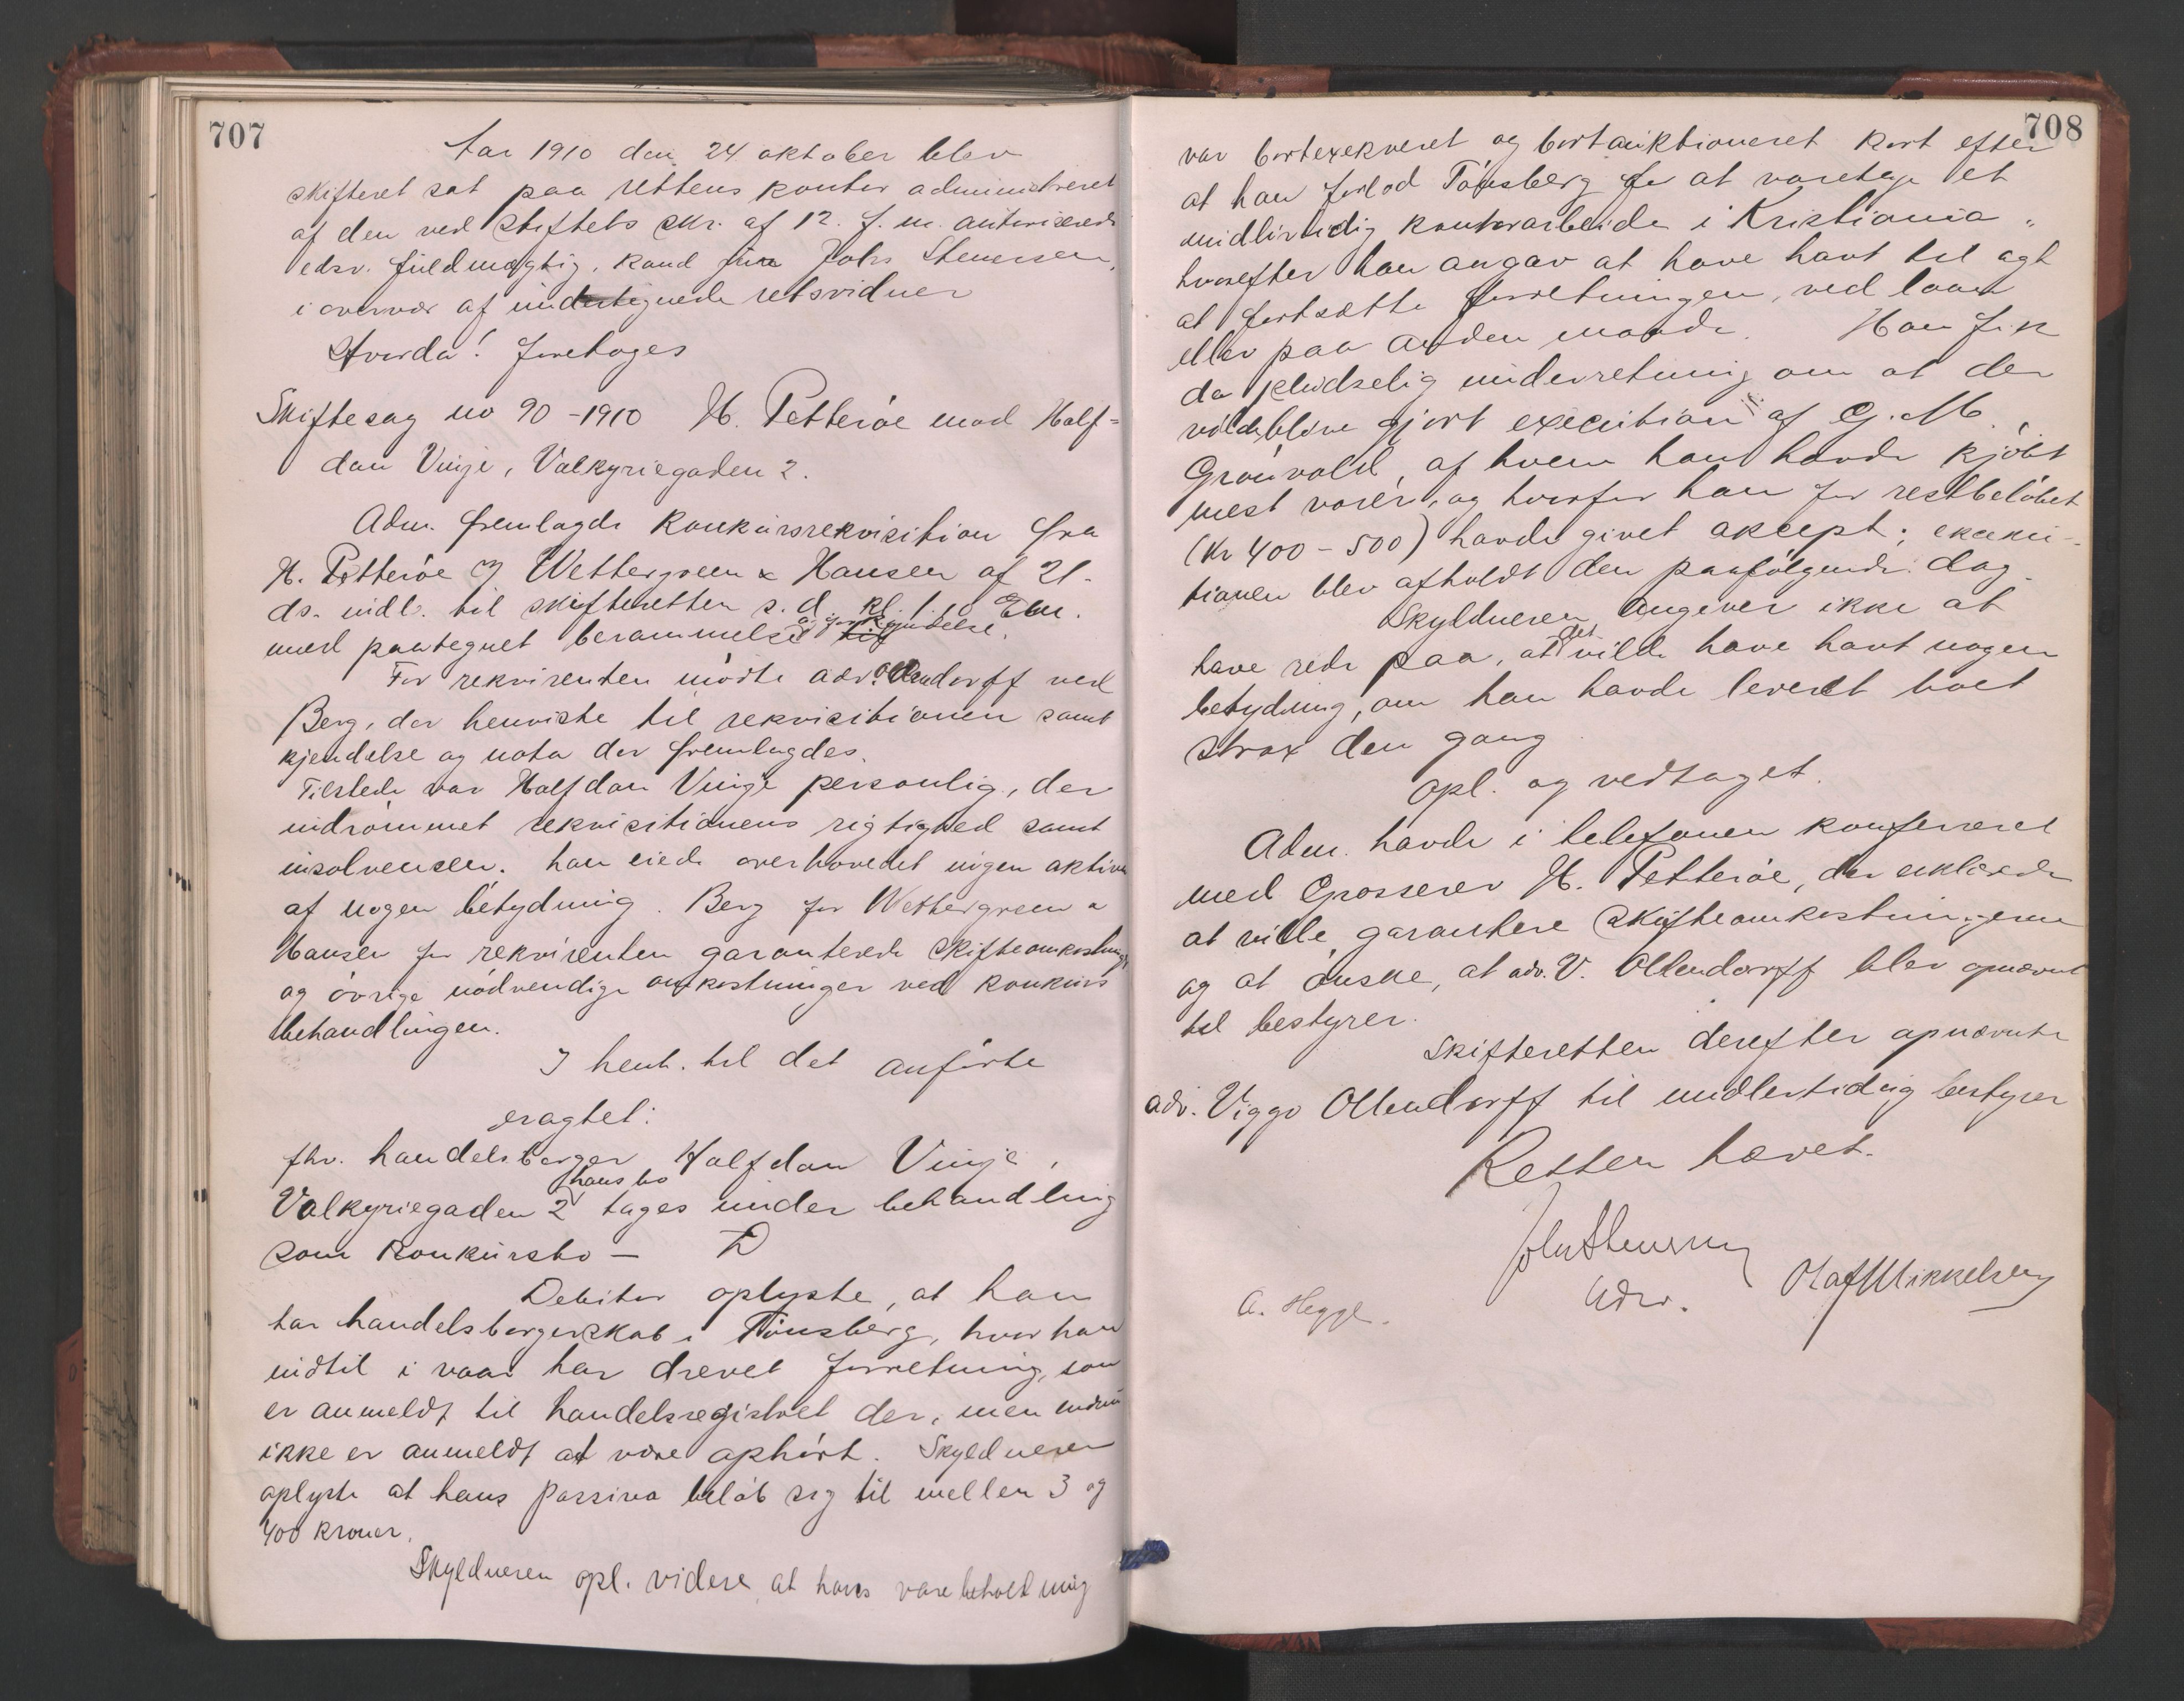 707
Aar 1910 den 24 oktober blev
skifteret sat paa rettens kontor administreret
af den ved Stiftets skr. af 12. f. m. autoriserede
edsv. fuldmægtig, kand jur Johs Stenersen,
i overvær af undertegnede retsvidner
Hvorda! foretoges
Skiftesag no 90 - 1910 H. Petterøe mod Half=
dan Vinje, Valkyriegaden 2.
Adm. fremlagde konkursrekvisition fra
H. Petterøe v/ Wettergreen & Hansen af 21.
ds. indl. til skifteretten s. d. kl. 1.10 Em.
med paategnet berammelse og forkyndelse.
For rekvirenten mødte adv. Ollendorff ved
Berg, der henviste til rekvisitionen samt
kjendelse og nota der fremlagdes.
Tilstede var Halfdan Vinje personlig, der
indrømmet rekvisitionens rigtighed samt
insolvensen. han eiede overhovedet ingen aktiva
af nogen betydning. Berg for Wettergreen &
Hansen for rekvirenten garanterede skifteomkostninger
og øvrige nødvendige omkostninger ved konkurs
behandlingen.
I henh. til det anførte
eragtet:
fhv. handelsborger Halfdan Vinje,
Valkyriegaden 2 hans bo tages under behandling
som konkursbo —
Debitor oplyste, at han
har handelsborgerskab i Tønsberg, hvor han
indtil i vaar har drevet forretning, som
er anmeldt til handelsregistret der, men endnu
ikke er anmeldt at være ophørt. Skyldneren
oplyste at hans passiva beløb sig til mellem 3 og
400 kroner.
Skyldneren opl. videre at hans varebeholdning
708
var bortexekveret og bortauktioneret kort efter
at han forlod Tønsberg for at varetage et
midlertidig kontorarbeide i Kristiania,
hvorefter han angav at have havt til agt
at fortsætte forretningen, ved laan
eller paa anden maade. Han fik
da pludselig underretning om at der
vilde blive gjort execution af G. M.
Grønvold, af hvem han havde kjøbt
mest varer, og hvorfor han for restbeløbet
(Kr 400 - 500) havde givet aksept; exeku-
tionen blev afholdt den paafølgende dag.
Skyldneren angiver ikke at
have rede paa, at det vilde have havt nogen
betydning, om han havde leveret boet
strax den gang
Opl. og vedtaget.
Adm. havde i telefonen konfereret
med Grosserer H. Petterøe, der erklærede
at ville garantere skifteomkostningerne
og at ønske, at adv. V. Ollendorff blev opnævnt
til bestyrer.
Skifteretten derefter opnævnte
adv. Viggo Ollendorff til midlertidig bestyrer
Retten hævet.
Johs Stenersen
edsv.
Olaf Mikkelsen
A. Hegge.